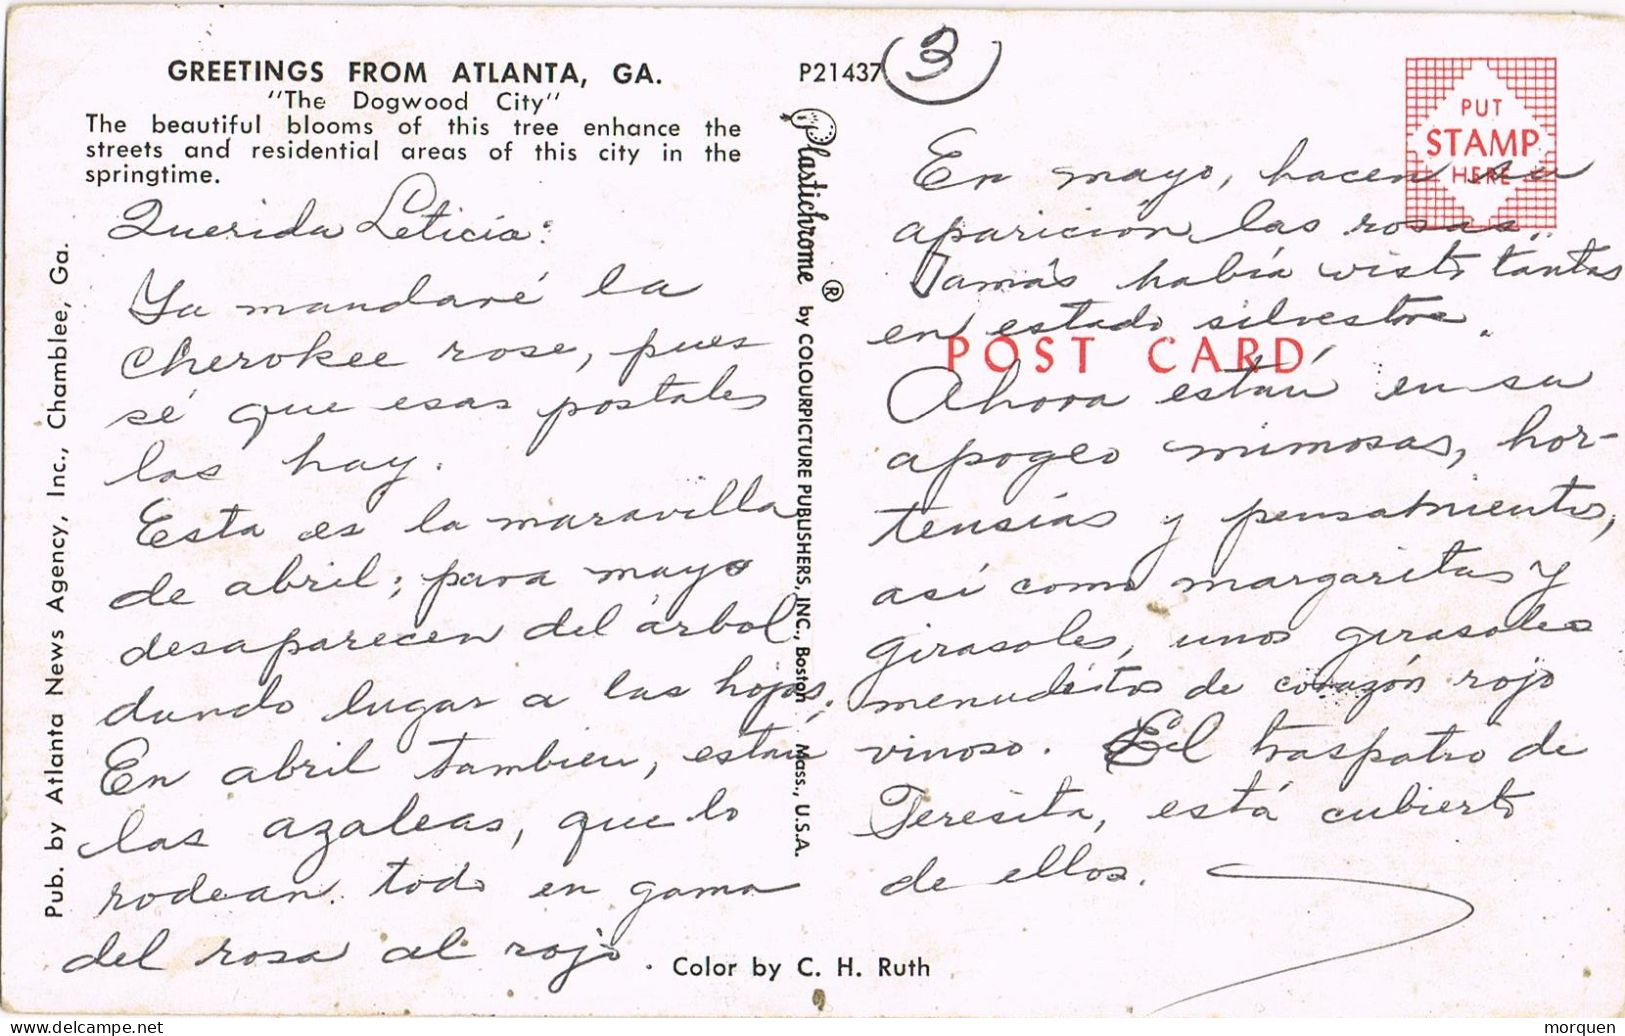 GREETINGS FROM ATLANTA, GA.
"The Dogwood City"
The beautiful blooms of this tree enhance the
streets and residential areas of this city in the
springtime.
Querida Leticia:
Ya mandaré la
Cherokee rose, pues
sé que esas postales
las hay.
Esta es la maravilla
de abril; para mayo
desaparecen del árbol
dando lugar a las hojas;
En abril tambien, estan
las azaleas, que lo
rodean todo en gama
del rosa al rojo.
Pub. by Atlanta News Agency, Inc., Chamblee, Ga.
Color by C. H. Ruth
P21437
3
Plastichrome ® by COLOURPICTURE PUBLISHERS, INC., Boston, Mass., U.S.A.
PUT
STAMP
HERE
POST CARD
En mayo, hacen su
aparición las rosas..
Jamás había visto tantas
en estado silvestre.
Ahora están en su
apogeo mimosas, hor-
tensias y pensamientos,
así como margaritas y
girasoles, unos girasoles
menuditos de corazón rojo
vinoso. El traspatio de
Teresita, está cubierto
de ellos.
morquen
www.delcampe.net